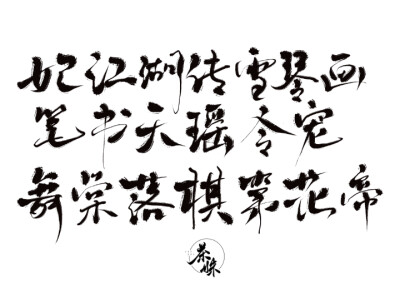 妃江湖传雪琴画
笔书天瑶令宠
舞棠落棋策花帝